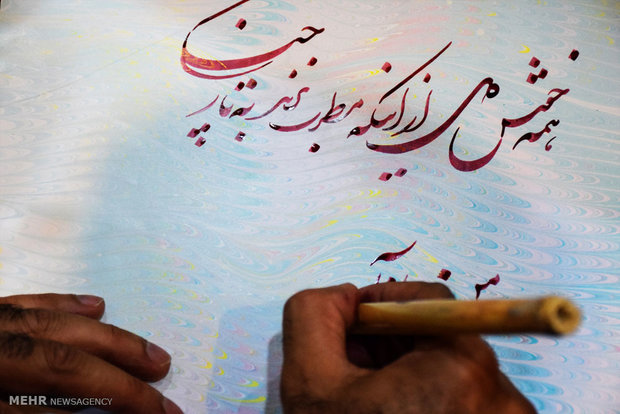 همه خوش دل از اینکه مطرب بزند به تار چنگی
MEHR NEWSAGENCY